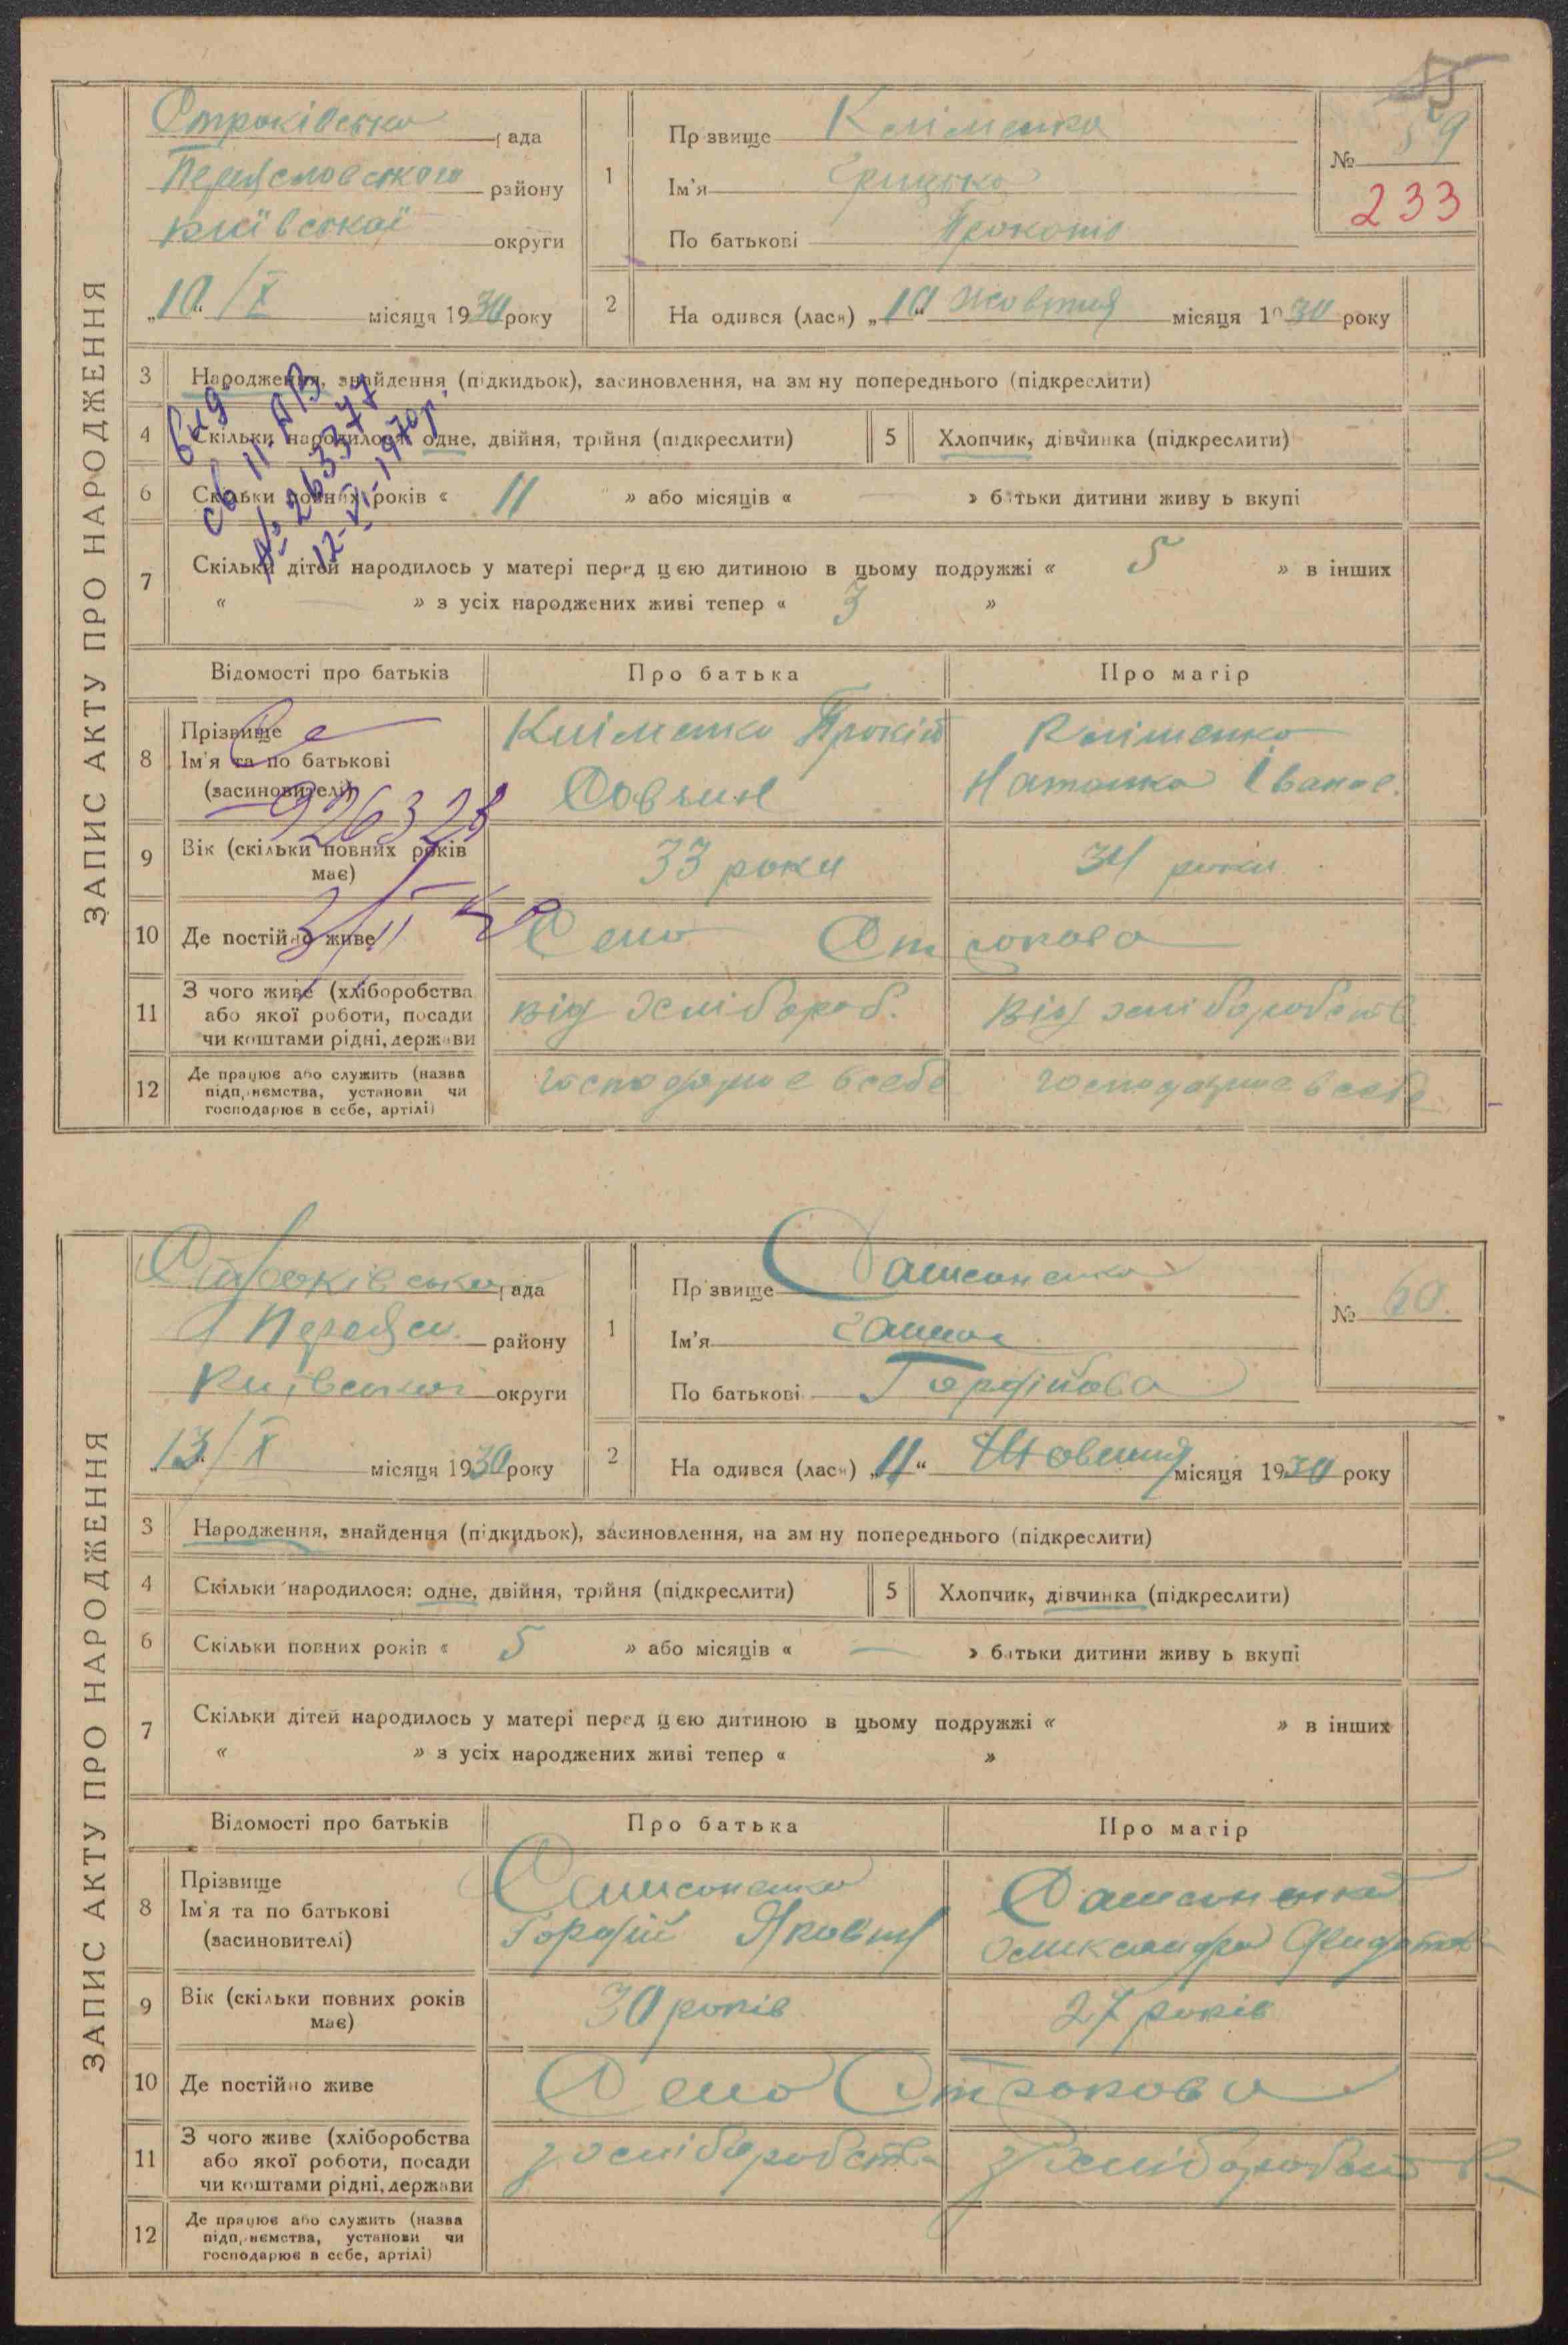 ЗАПИС АКТУ ПРО НАРОДЖЕННЯ
Строківська рада
Переяславського району
Київської округи
„10“ /X місяця 1930 року
1 Прізвище Кліменко
Ім'я Грицько
По батькові Прокопів
№ 59
233
2 На одився (лася) „10“ жовтня місяця 1930 року
3 Народження, знайдення (підкидьок), засиновлення, на зм ну попереднього (підкреслити)
4 Скільки народилося: одне, двійня, трійня (підкреслити)
5 Хлопчик, дівчинка (підкреслити)
6 Скільки повних років « 11 » або місяців « — » батьки дитини живу ь вкупі
7 Скільки дітей народилось у матері перед цією дитиною в цьому подружжі « 5 » в інших
« — » з усіх народжених живі тепер « 3 »
вид
св 11-АВ
№ 263377
12-VI-1970р.
Відомості про батьків
Про батька
Про матір
8 Прізвище
Ім'я та по батькові
(засиновителі)
Кліменко Прокіп
Кліменко
Наталка Іванов.
926328
9 Вік (скільки повних років
має)
33 роки
34 роки
10 Де постійно живе
Село Строкова
11 З чого живе (хліборобства
або якої роботи, посади
чи коштами рідні, держави
від хлібороб.
від хліборобств.
12 Де працює або служить (назва
підприємства, установи чи
господарює в себе, артілі)
господарює в себе
господарює в себе
ЗАПИС АКТУ ПРО НАРОДЖЕННЯ
Строківська рада
Переясл. району
Київської округи
„13“ /X місяця 1930 року
1 Прізвище Самсоненко
Ім'я Галина
По батькові Гордійова
№ 60.
2 На одився (лася) „11“ Жовтня місяця 1930 року
3 Народження, знайдення (підкидьок), засиновлення, на зм ну попереднього (підкреслити)
4 Скільки народилося: одне, двійня, трійня (підкреслити)
5 Хлопчик, дівчинка (підкреслити)
6 Скільки повних років « 5 » або місяців « — » батьки дитини живу ь вкупі
7 Скільки дітей народилось у матері перед цією дитиною в цьому подружжі « » в інших
« » з усіх народжених живі тепер « »
Відомості про батьків
Про батька
Про матір
8 Прізвище
Ім'я та по батькові
(засиновителі)
Самсоненко
Гордій Якович
Самсоненко
Олександра
9 Вік (скільки повних років
має)
30 років
27 років
10 Де постійно живе
Село Строкова
11 З чого живе (хліборобства
або якої роботи, посади
чи коштами рідні, держави
з хліборобства
з хліборобства
12 Де працює або служить (назва
підприємства, установи чи
господарює в себе, артілі)